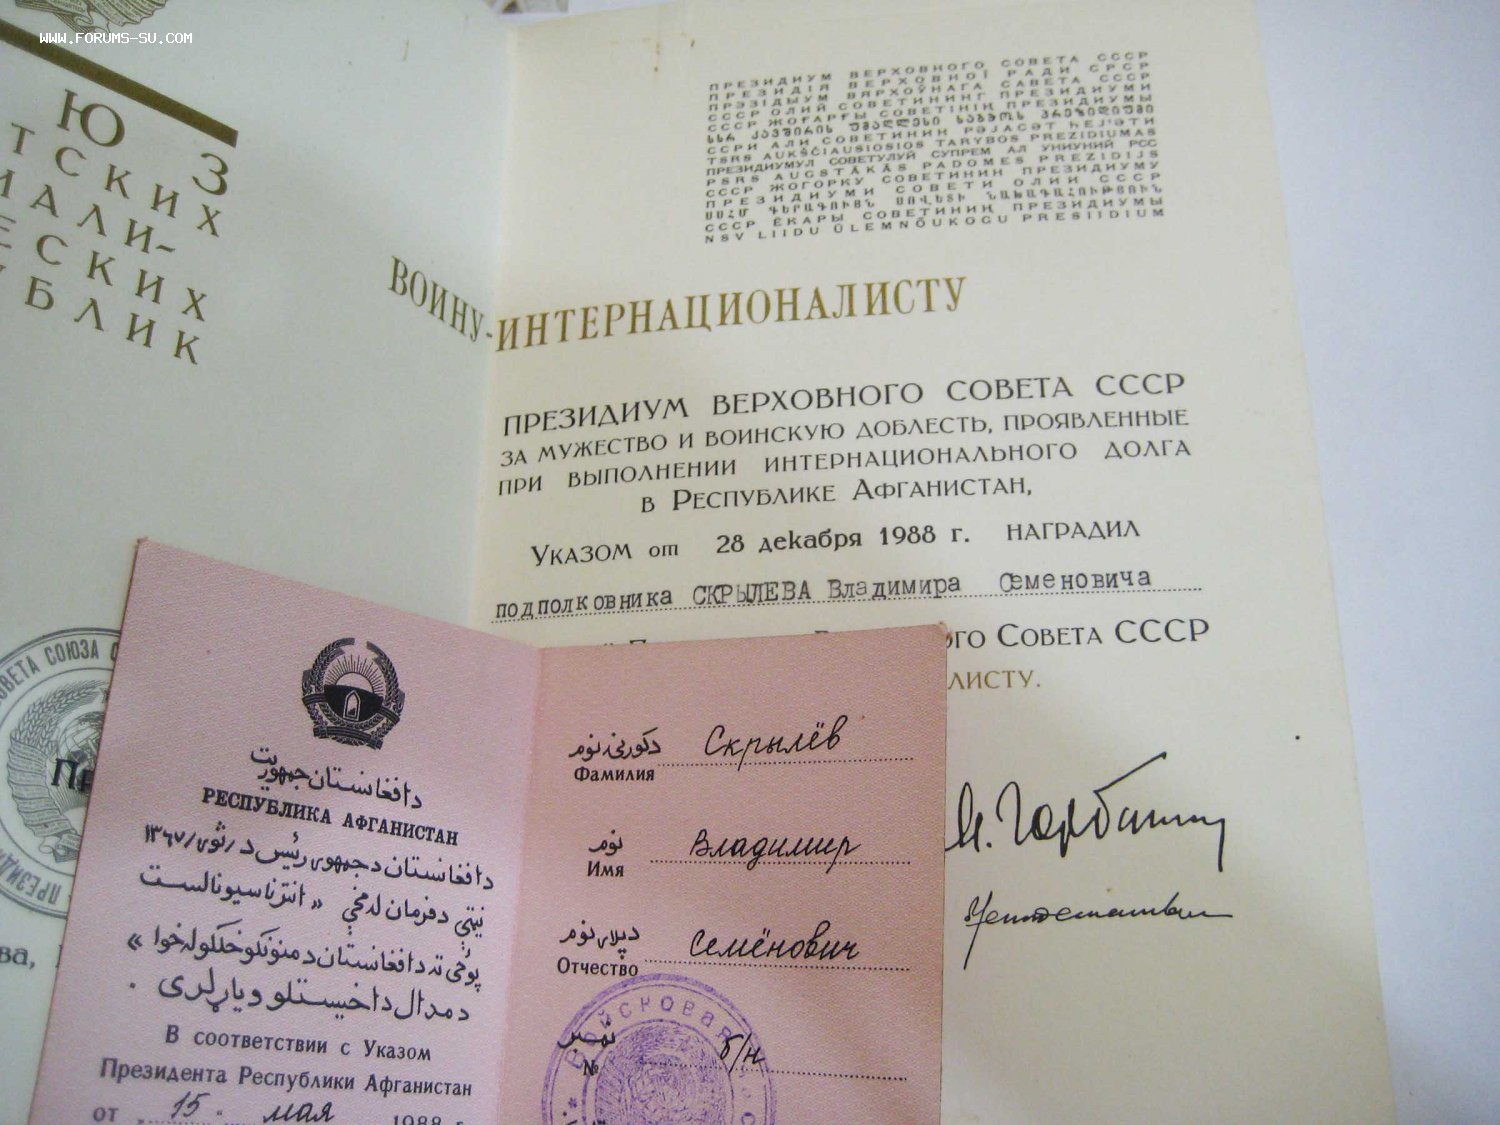 WWW.FORUMS-SU.COM
ЮЗ
ТСКИХ
ИАЛИ-
ЕСКИХ
УБЛИК
ПРЕЗИДИУМ ВЕРХОВНОГО СОВЕТА СССР
ПРЕЗИДІЯ ВЕРХОВНОЇ РАДИ СРСР
ПРЭЗІДЫУМ ВЯРХОЎНАГА САВЕТА СССР
СССР ОЛИЙ СОВЕТИНИНГ ПРЕЗИДИУМИ
СССР ЖОҒАРҒЫ СОВЕТІНІҢ ПРЕЗИДИУМЫ
ССРИ АЛИ СОВЕТИНИН РӘЈАСӘТ ҺЕЈ'ӘТИ
TSRS AUKŠČIAUSIOSIOS TARYBOS PREZIDIUMAS
ПРЕЗИДИУМУЛ СОВЕТУЛУЙ СУПРЕМ АЛ УНИУНИЙ РСС
PSRS AUGSTĀKĀS PADOMES PREZIDIJS
СССР ЖОГОРКУ СОВЕТИНИН ПРЕЗИДИУМУ
ПРЕЗИДИУМИ СОВЕТИ ОЛИИ СССР
ՍՍՀՄ ԳԵՐԱԳՈՒՅՆ ՍՈՎԵՏԻ ՆԱԽԱԳԱՀՈՒԹՅՈՒՆ
СССР ЁКАРЫ СОВЕТИНИҢ ПРЕЗИДИУМЫ
NSV LIIDU ÜLEMNÕUKOGU PRESIIDIUM
ВОИНУ-ИНТЕРНАЦИОНАЛИСТУ
ПРЕЗИДИУМ ВЕРХОВНОГО СОВЕТА СССР
ЗА МУЖЕСТВО И ВОИНСКУЮ ДОБЛЕСТЬ, ПРОЯВЛЕННЫЕ
ПРИ ВЫПОЛНЕНИИ ИНТЕРНАЦИОНАЛЬНОГО ДОЛГА
В РЕСПУБЛИКЕ АФГАНИСТАН,
УКАЗОМ от 28 декабря 1988 г. НАГРАДИЛ
подполковника СКРЫЛЕВА Владимира Семеновича
ОГО СОВЕТА СССР
ЛИСТУ.
М. Горбачев
ВЕТА СОЮЗА
ПРЕЗИДИ
ва,
دافغانستان جمهوریت
РЕСПУБЛИКА АФГАНИСТАН
دافغانستان د جمهوری رئیس د /ثور/ ۱۳۶۷
نیټې د فرمان له مخې « انترناسیونالست
پوځی ته دافغانستان د مننونکو خلکو له خوا »
د مدال داخیستلو ویاړ لری .
В соответствии с Указом
Президента Республики Афганистан
от 15 мая 1988 г.
دکورنۍ نوم
Фамилия Скрылёв
نوم
Имя Владимир
دپلار نوم
Отчество Семёнович
نمبر
№ б/н
Войсковая